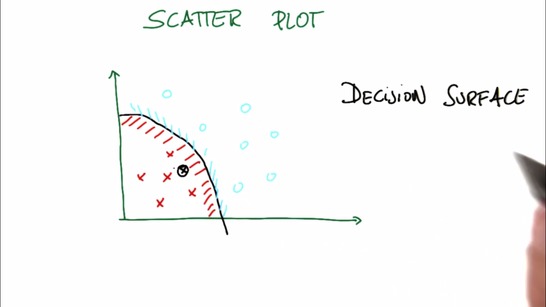 SCATTER PLOT
DECISION SURFACE